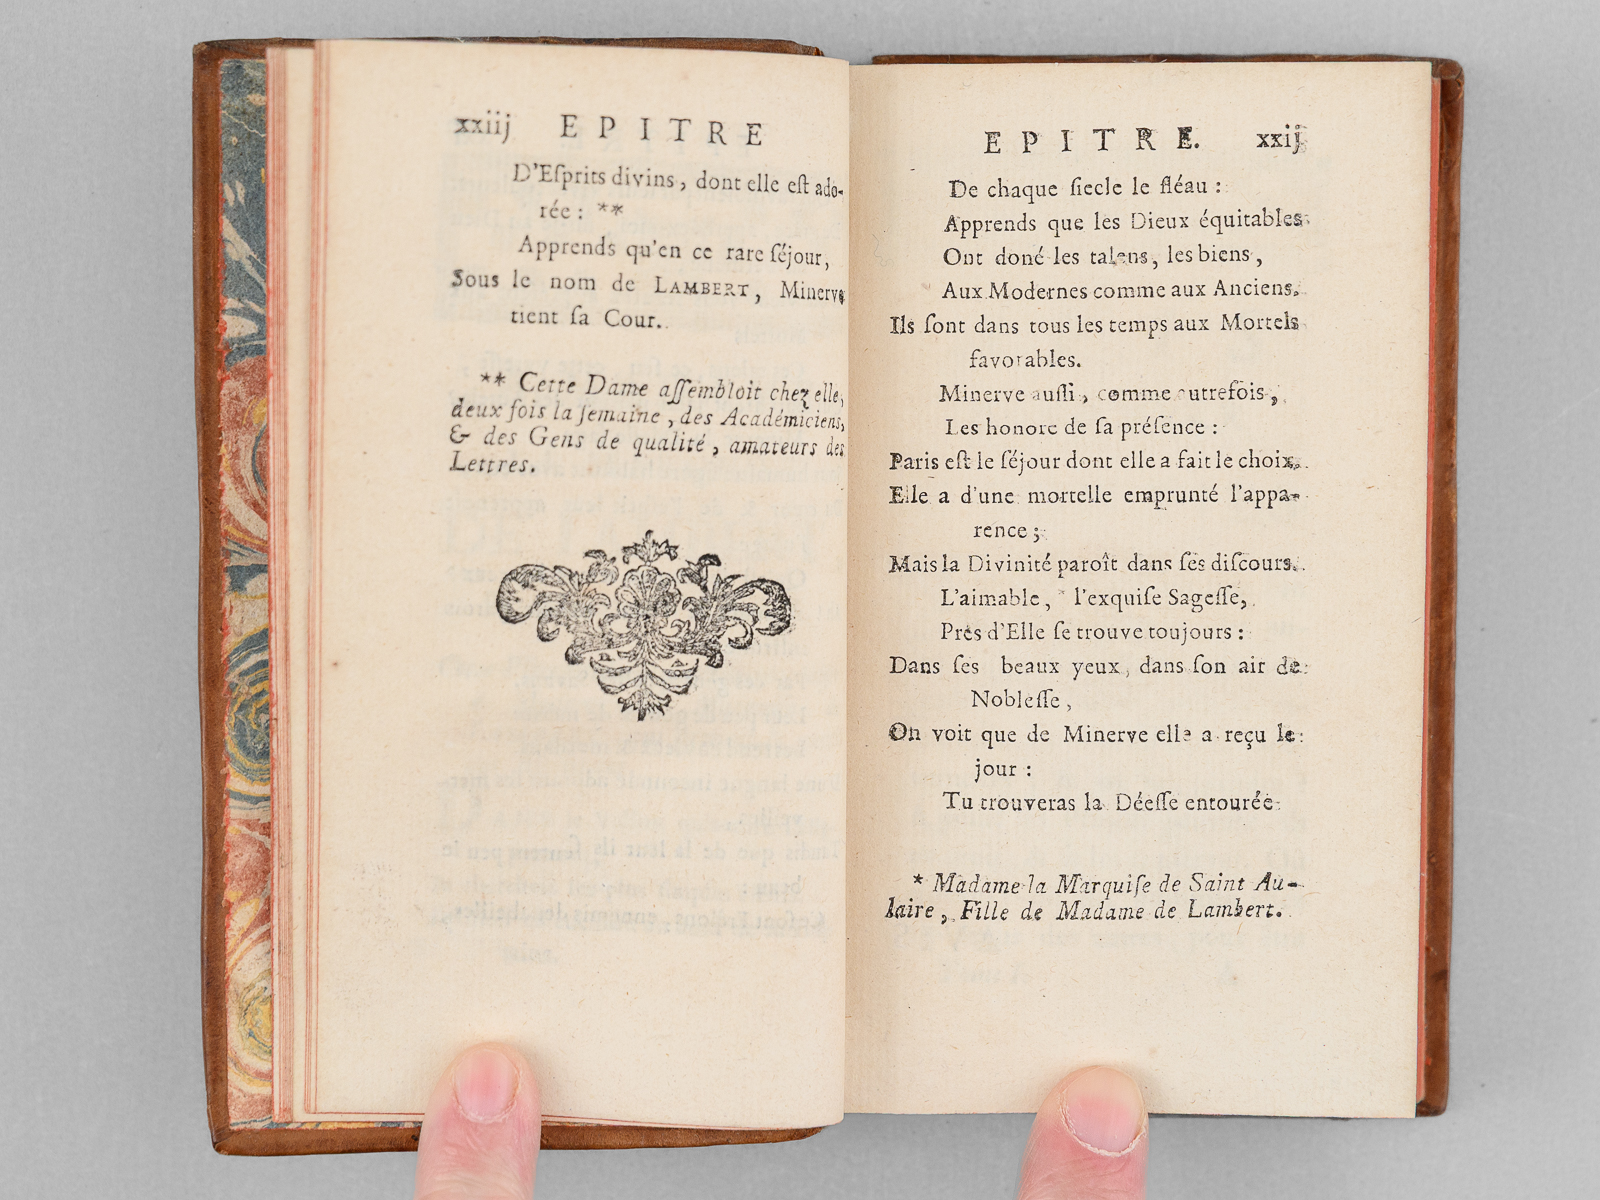 xxiij EPITRE
D'Eſprits divins, dont elle eſt ado-
rée : **
Apprends qu'en ce rare ſéjour,
Sous le nom de LAMBERT, Minerve
tient ſa Cour.
** Cette Dame aſſembloit chez elle,
deux fois la ſemaine, des Académiciens,
& des Gens de qualité, amateurs des
Lettres.
EPITRE. xxij
De chaque ſiecle le fléau :
Apprends que les Dieux équitables
Ont doné les talens, les biens,
Aux Modernes comme aux Anciens.
Ils ſont dans tous les temps aux Mortels
favorables.
Minerve auſſi, comme utrefois,
Les honore de ſa préſence :
Paris eſt le ſéjour dont elle a fait le choix.
Elle a d'une mortelle emprunté l'appa-
rence ;
Mais la Divinité paroît dans ſes diſcours.
L'aimable, * l'exquiſe Sageſſe,
Près d'Elle ſe trouve toujours :
Dans ſes beaux yeux, dans ſon air de
Nobleſſe,
On voit que de Minerve elle a reçu le
jour :
Tu trouveras la Déeſſe entourée
* Madame la Marquiſe de Saint Au-
laire, Fille de Madame de Lambert.